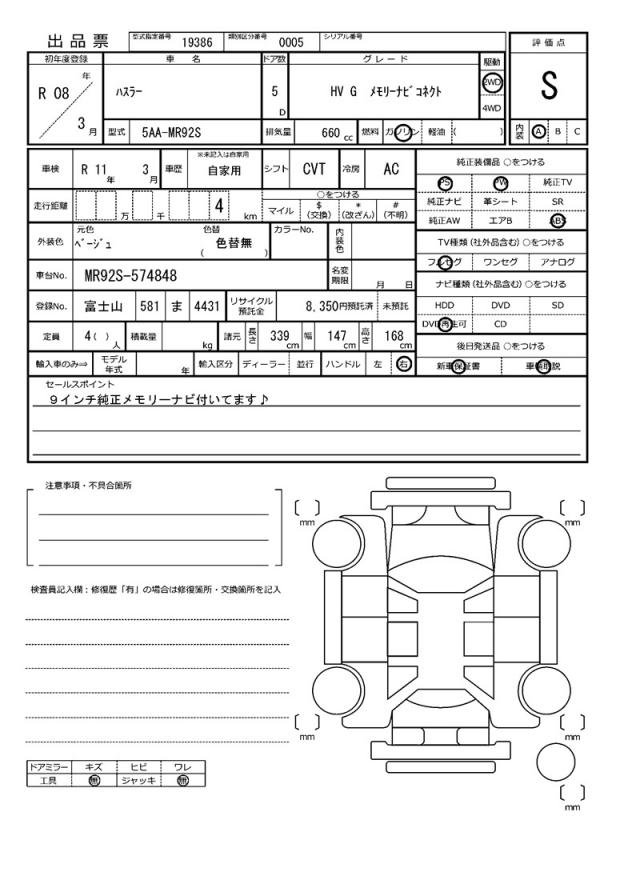 出品票 型式指定番号 19386 類別区分番号 0005 シリアル番号
評価点
S
内装 A B C
初年度登録 車名 ドア数 グレード 駆動
R 08 年 3 月 ハスラー 5 D HV G メモリーナビコネクト 2WD 4WD
型式 5AA-MR92S 排気量 660 cc 燃料 ガソリン 軽油 ( )
車検 R 11 年 3 月 車歴 ※未記入は自家用 自家用 シフト CVT 冷房 AC
走行距離 万 千 4 km ○をつける
マイル $(交換) *(改ざん) #(不明)
外装色 元色 ベージュ 色替 色替無 ( ) カラーNo. 内装色
車台No. MR92S-574848 名変期限 月 日
登録No. 富士山 581 ま 4431 リサイクル預託金 8,350円預託済 未預託
定員 4( ) 人 積載量 kg 諸元 長さ 339 cm 幅 147 cm 高さ 168 cm
輸入車のみ⇒ モデル年式 年 輸入区分 ディーラー 並行 ハンドル 左 右
純正装備品 ○をつける
PS PW 純正TV
純正ナビ 革シート SR
純正AW エアB ABS
TV種類 (社外品含む) ○をつける
フルセグ ワンセグ アナログ
ナビ種類 (社外品含む) ○をつける
HDD DVD SD
DVD再生可 CD
後日発送品 ○をつける
新車保証書 車輌取説
セールスポイント
9インチ純正メモリーナビ付いてます♪
注意事項・不具合箇所
検査員記入欄：修復歴「有」の場合は修復箇所・交換箇所を記入
mm
mm
mm
mm
mm
ドアミラー キズ ヒビ ワレ
工具 無 ジャッキ 無